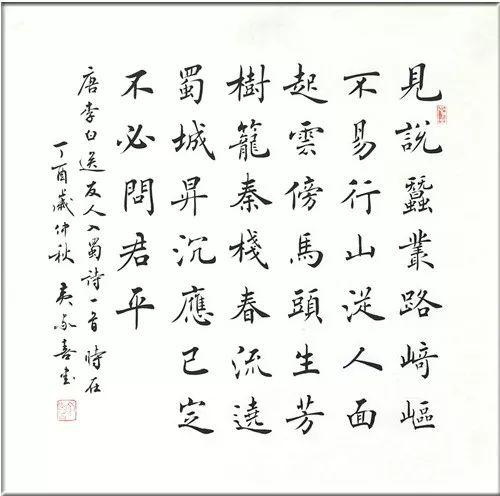 見說蠶叢路崎嶇
不易行山從人面
起雲傍馬頭生芳
樹籠秦棧春流遶
蜀城昇沉應已定
不必問君平
唐李白送友人入蜀詩一首時在
丁酉歲仲秋 喜書